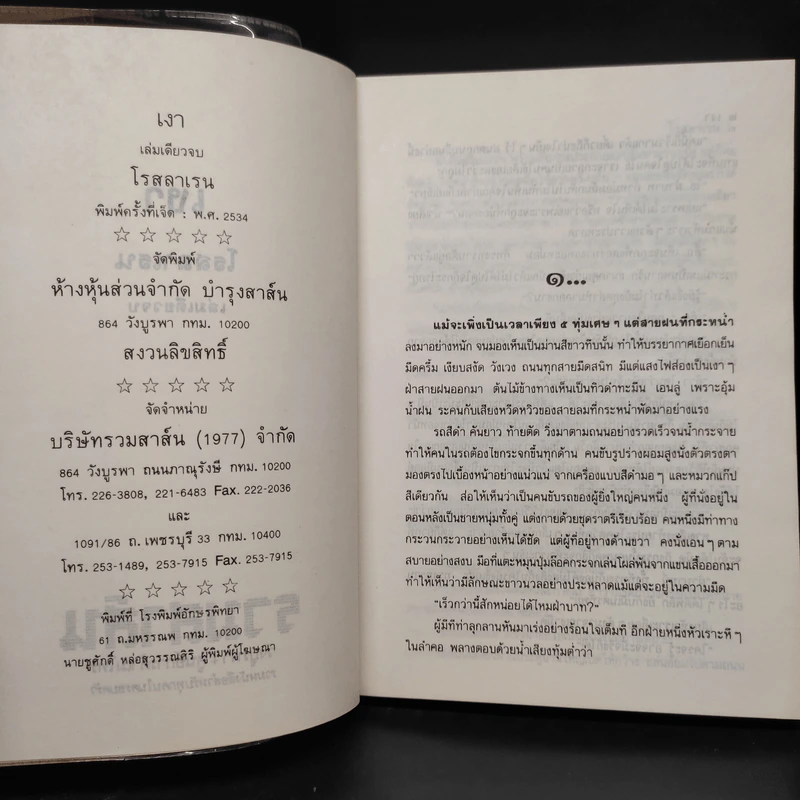 เงา
เล่มเดียวจบ
โรสลาเรน
พิมพ์ครั้งที่เจ็ด : พ.ศ. 2534
☆ ☆ ☆ ☆ ☆
จัดพิมพ์
ห้างหุ้นส่วนจำกัด บำรุงสาส์น
864 วังบูรพา กทม. 10200
สงวนลิขสิทธิ์
☆ ☆ ☆ ☆ ☆
จัดจำหน่าย
บริษัทรวมสาส์น (1977) จำกัด
864 วังบูรพา ถนนภาณุรังษี กทม. 10200
โทร. 226-3808, 221-6483 Fax. 222-2036
และ
1091/86 ถ.เพชรบุรี 33 กทม. 10400
โทร. 253-1489, 253-7915 Fax. 253-7915
☆ ☆ ☆ ☆ ☆
พิมพ์ที่ โรงพิมพ์อักษรพิทยา
61 ถ.มหรรณพ กทม. 10200
นายชูศักดิ์ หล่อสุวรรณศิริ ผู้พิมพ์ผู้โฆษณา
๑...
แม้จะเพิ่งเป็นเวลาเพียง ๕ ทุ่มเศษ ๆ แต่สายฝนที่กระหน่ำ
ลงมาอย่างหนัก จนมองเห็นเป็นม่านสีขาวทึบนั้น ทำให้บรรยากาศเยือกเย็น
มืดครึ้ม เงียบสงัด วังเวง ถนนทุกสายมืดสนิท มีแต่แสงไฟส่องเป็นเงา ๆ
ฝ่าสายฝนออกมา ต้นไม้ข้างทางเห็นเป็นทิวดำทะมึน เอนลู่ เพราะอุ้ม
น้ำฝน ระคนกับเสียงหวีดหวิวของสายลมที่กระหน่ำพัดมาอย่างแรง
รถสีดำ คันยาว ท้ายตัด วิ่งมาตามถนนอย่างรวดเร็วจนน้ำกระจาย
ทำให้คนในรถต้องไขกระจกขึ้นทุกด้าน คนขับรูปร่างผอมสูงนั่งตัวตรงตา
มองตรงไปเบื้องหน้าอย่างแน่วแน่ จากเครื่องแบบสีดำมอ ๆ และหมวกแก๊ป
สีเดียวกัน ส่อให้เห็นว่าเป็นคนขับรถของผู้ยิ่งใหญ่คนหนึ่ง ผู้ที่นั่งอยู่ใน
ตอนหลังเป็นชายหนุ่มทั้งคู่ แต่งกายด้วยชุดราตรีเรียบร้อย คนหนึ่งมีท่าทาง
กระวนกระวายอย่างเห็นได้ชัด แต่ผู้ที่อยู่ทางด้านขวา คงนั่งเอน ๆ ตาม
สบายอย่างสงบ มือที่แตะหมุนปุ่มล๊อคกระจกเล่นโผล่พ้นจากแขนเสื้อออกมา
ทำให้เห็นว่ามีลักษณะขาวนวลอย่างประหลาดแม้แต่จะอยู่ในความมืด
"เร็วกว่านี้สักหน่อยได้ไหมฝ่าบาท?"
ผู้มีทีท่าลุกลานหันมาเร่งอย่างร้อนใจเต็มที อีกฝ่ายหนึ่งหัวเราะหึ ๆ
ในลำคอ พลางตอบด้วยน้ำเสียงทุ้มต่ำว่า